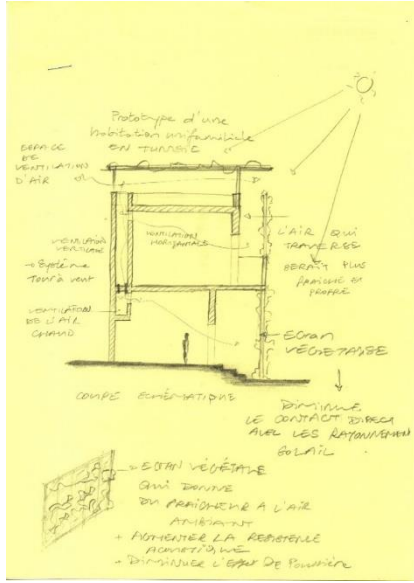 Prototype d'une
habitation unifamiliale
EN TUNISIE
ESPACE
DE
VENTILATION
D'AIR
VENTILATION
VERTICALE
→ Système
Tour à vent
VENTILATION
HORIZONTALE
VENTILATION
DE L'AIR
CHAUD
L'AIR QUI
TRAVERSE
SERAIT PLUS
FRAICHE
PROPRE
ECRAN
VÉGÉTALE
COUPE SCHÉMATIQUE
DIMINUE
LE CONTACT DIRECT
AVEC LES RAYONNEMENT
SOLAIL
ECRAN VÉGÉTALE
QUI DONNE
DU FRAICHEUR A L'AIR
AMBIANT
+ AUGMENTER LA
ACOUSTIQUE
+ DIMINUER L'EFFET DE Poussière